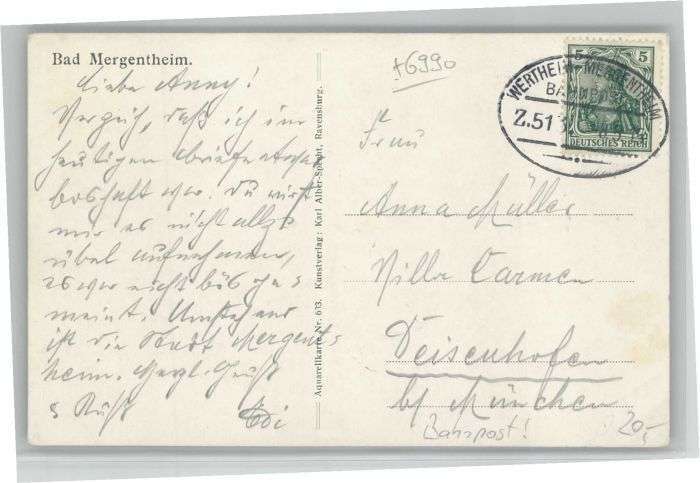 Bad Mergentheim.
Liebe Anny!
Verzeih, daß ich im
heutigen Brief etwas
boshaft war. Du wirst
mir es nicht allzu
übel aufnehmen,
es war nicht bös ge-
meint. Umstehend
ist die Stadt Mergent-
heim. Herzl. Gruß
s Kuß Edi
Aquarellkarte Nr. 613. Kunstverlag: Karl Alber-Specht, Ravensburg.
+6990
WERTHEIM MERGENTHEIM
Z.51
5 5
DEUTSCHES REICH
Frau
Anna Müller
Villa Carmen
Deisenhofen
bei München
Bahnpost!
20,-